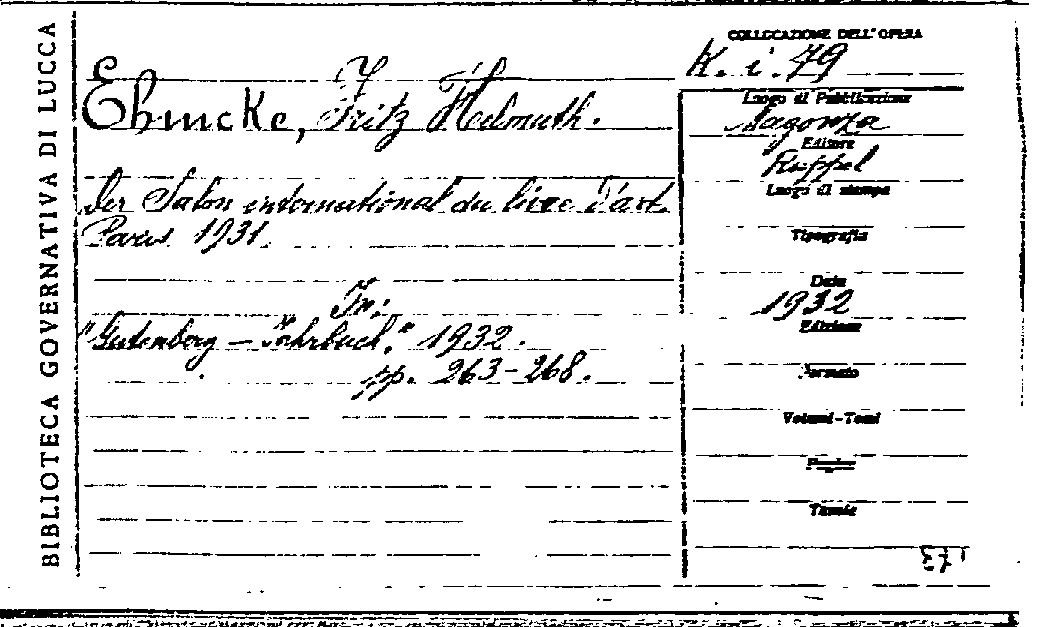 BIBLIOTECA GOVERNATIVA DI LUCCA
COLLOCAZIONE DELL'OPERA
K. i. 79
Ehmcke, Fritz Helmuth.
Der Salon international du livre d'art.
Paris 1931.
In:
"Gutenberg - Jahrbuch", 1932.
pp. 263-268.
Luogo di Pubblicazione
Magonza
Editore
Ruppel
Luogo di stampa
Tipografia
Data
1932
Edizione
Formato
Volumi-Tomi
Tavole